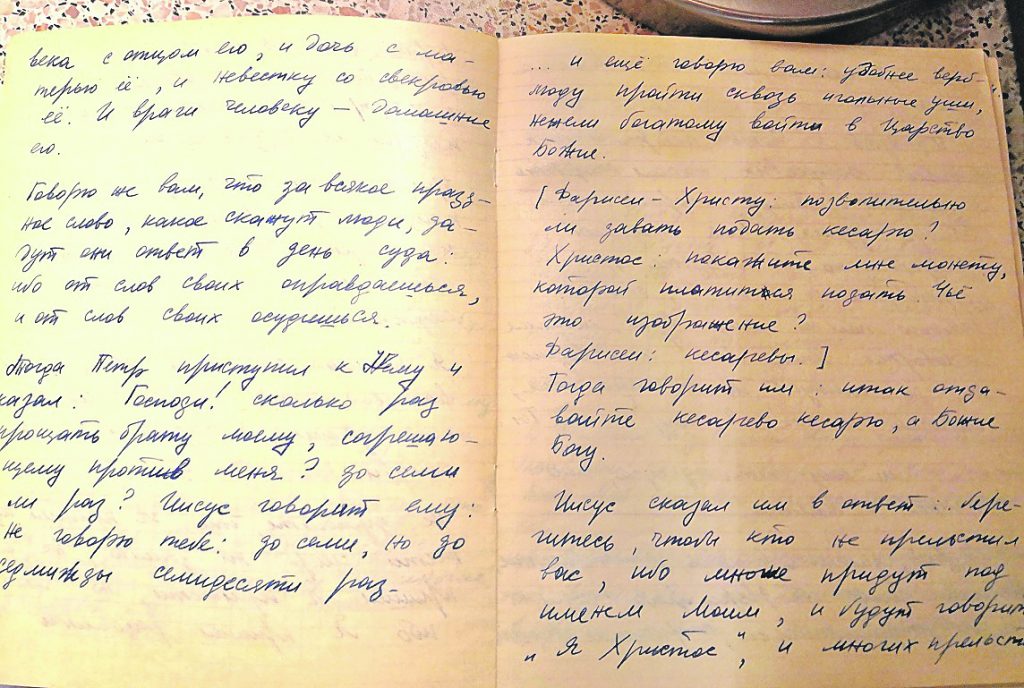 века с отцом его, и дочь с ма-
терью её, и невестку со свекровью
её. И враги человеку – домашние
его.
Говорю же вам, что за всякое празд-
ное слово, какое скажут люди, да-
дут они ответ в день суда:
ибо от слов своих оправдаешься,
и от слов своих осудишься.
Тогда Петр приступил к Нему и
сказал: Господи! сколько раз
прощать брату моему, согрешаю-
щему против меня? до семи
ли раз? Иисус говорит ему:
не говорю тебе: до семи, но до
седмижды семидесяти раз
... и ещё говорю вам: удобнее верб-
люду пройти сквозь игольные уши,
нежели богатому войти в Царство
Божие.
[Фарисеи – Христу: позволительно
ли давать подать кесарю?
Христос: покажите мне монету,
которой платится подать. Чьё
это изображение?
Фарисеи: кесаревы.]
Тогда говорит им: итак отда-
вайте кесарево кесарю, а Божие
Богу.
Иисус сказал им в ответ: бере-
гитесь, чтобы кто не прельстил
вас, ибо многие придут под
именем Моим, и будут говорит
„Я Христос", и многих прельст